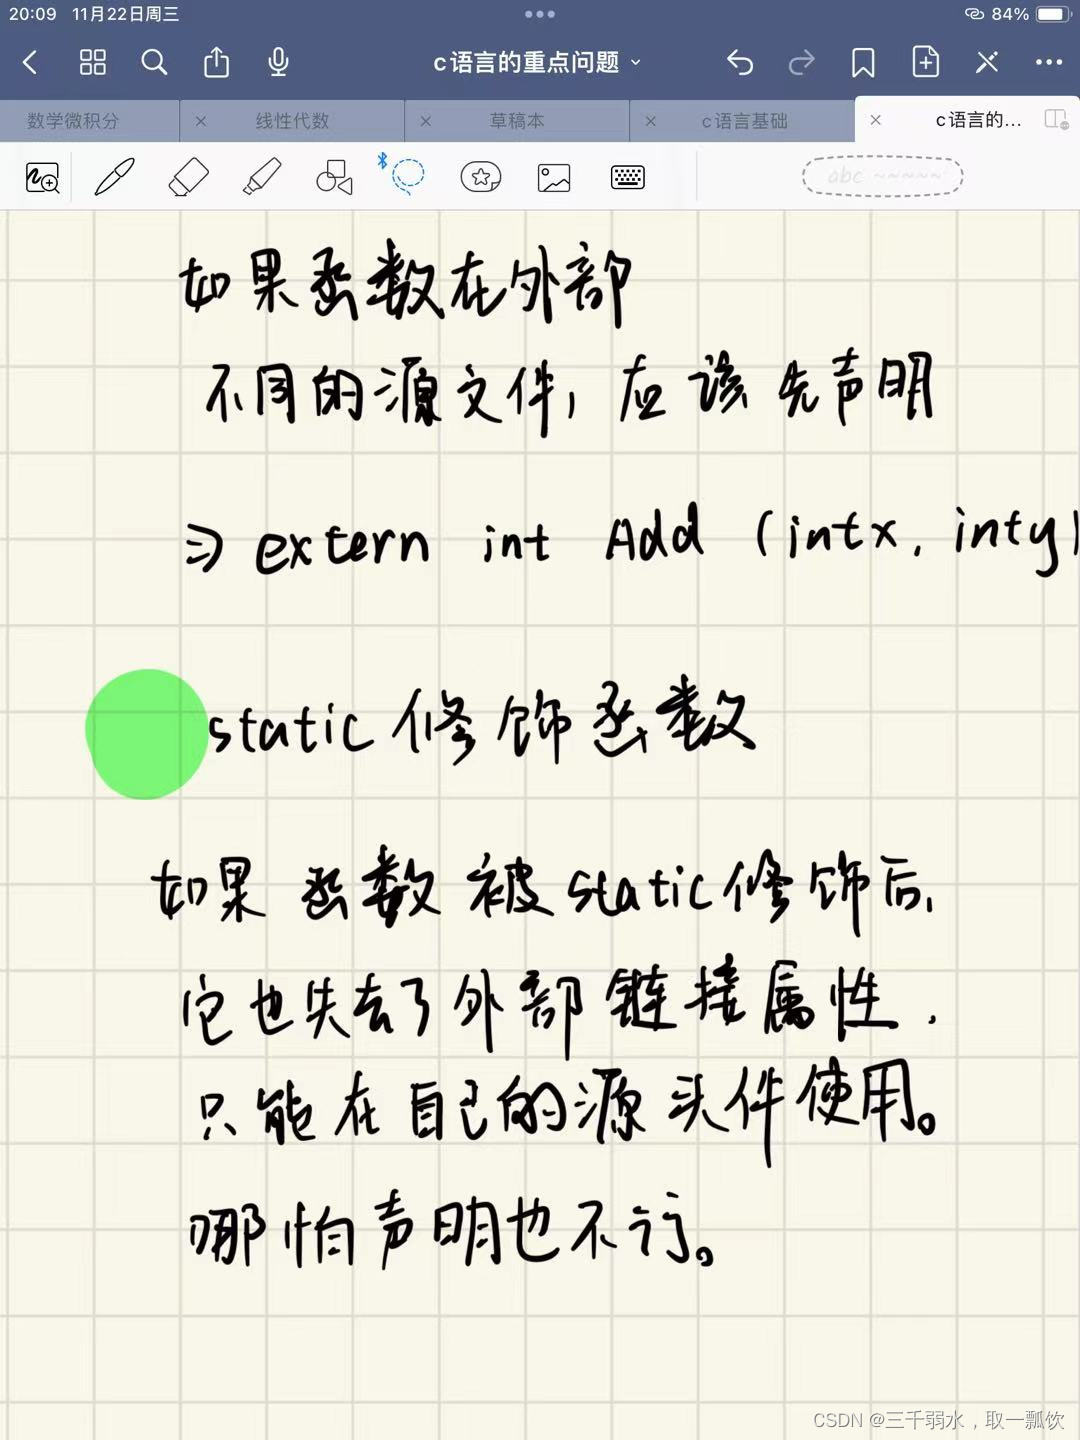 20:09 11月22日周三
84%
c语言的重点问题
数学微积分
线性代数
草稿本
c语言基础
c语言的...
abc ~~~~~
如果函数在外部
不同的源文件，应该先声明
⇒ extern int Add (intx, inty)
static修饰函数
如果函数被static修饰后，
它也失去了外部链接属性，
只能在自己的源头件使用。
哪怕声明也不行。
CSDN @三千弱水，取一瓢饮